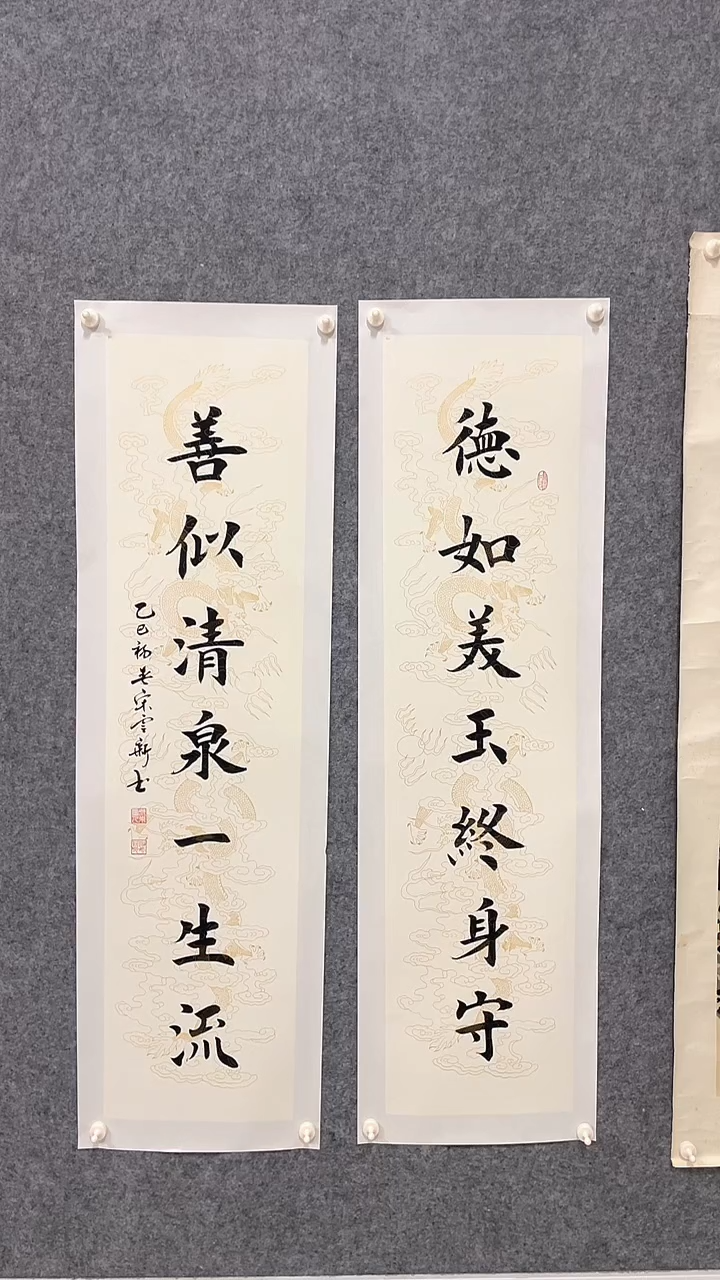 德如美玉終身守
善似清泉一生流
乙巳初春宋雲新书